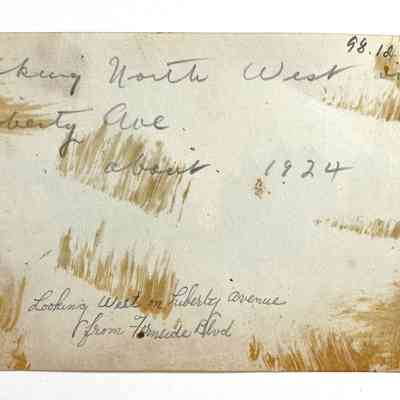 98.12.
king North West on
iberty Ave.
about 1924
Looking West on Liberty Avenue
from Fernside Blvd